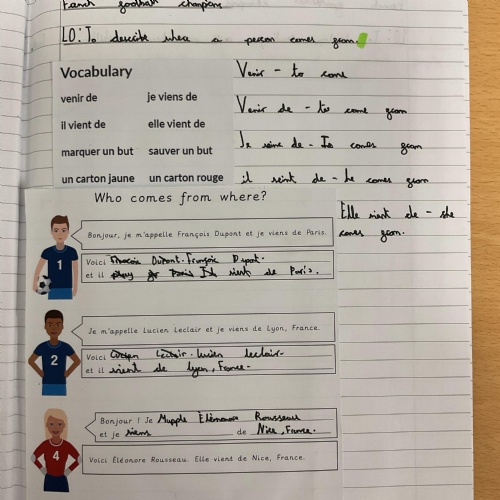 French football champions
LO: To describe where a person comes from.
Vocabulary
venir de je viens de
il vient de elle vient de
marquer un but sauver un but
un carton jaune un carton rouge
Venir - to come
Venir de - to come from
de - I comes from
il vient de - he comes from
Elle vient de - she
comes from.
Who comes from where?
1
Bonjour, je m'appelle François Dupont et je viens de Paris.
Voici Dupont. François Dupont.
et il vient de Paris.
2
Je m'appelle Lucien Leclair et je viens de Lyon, France.
Voici Lucien Leclair. Lucien leclair.
et il vient de Lyon, France.
4
Bonjour ! Je Éléonore Rousseau
et je viens de Nice, France.
Voici Éléonore Rousseau. Elle vient de Nice, France.